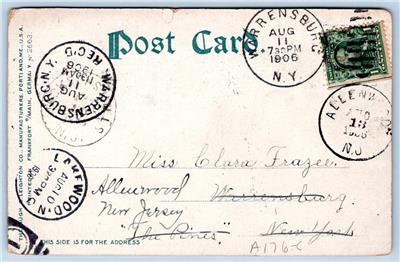 Post Card.
WARRENSBURG
AUG
11
730PM
1906
N.Y.
WARRENSBURG, N.Y.
AUG
11
1130AM
1906
REC'D.
ALLENWOOD
AUG
13
1906
N.J.
LAKEWOOD, N.J.
AUG 10
3 PM
1906
THE HUGH C. LEIGHTON CO., MANUFACTURERS, PORTLAND, ME., U.S.A.
FRANKFORT O/MAIN, GERMANY Nº 2663
Miss Clara Frazee.
Allenwood Warrensburg
New Jersey New York
"The Pines"
A176-C
THIS SIDE IS FOR THE ADDRESS